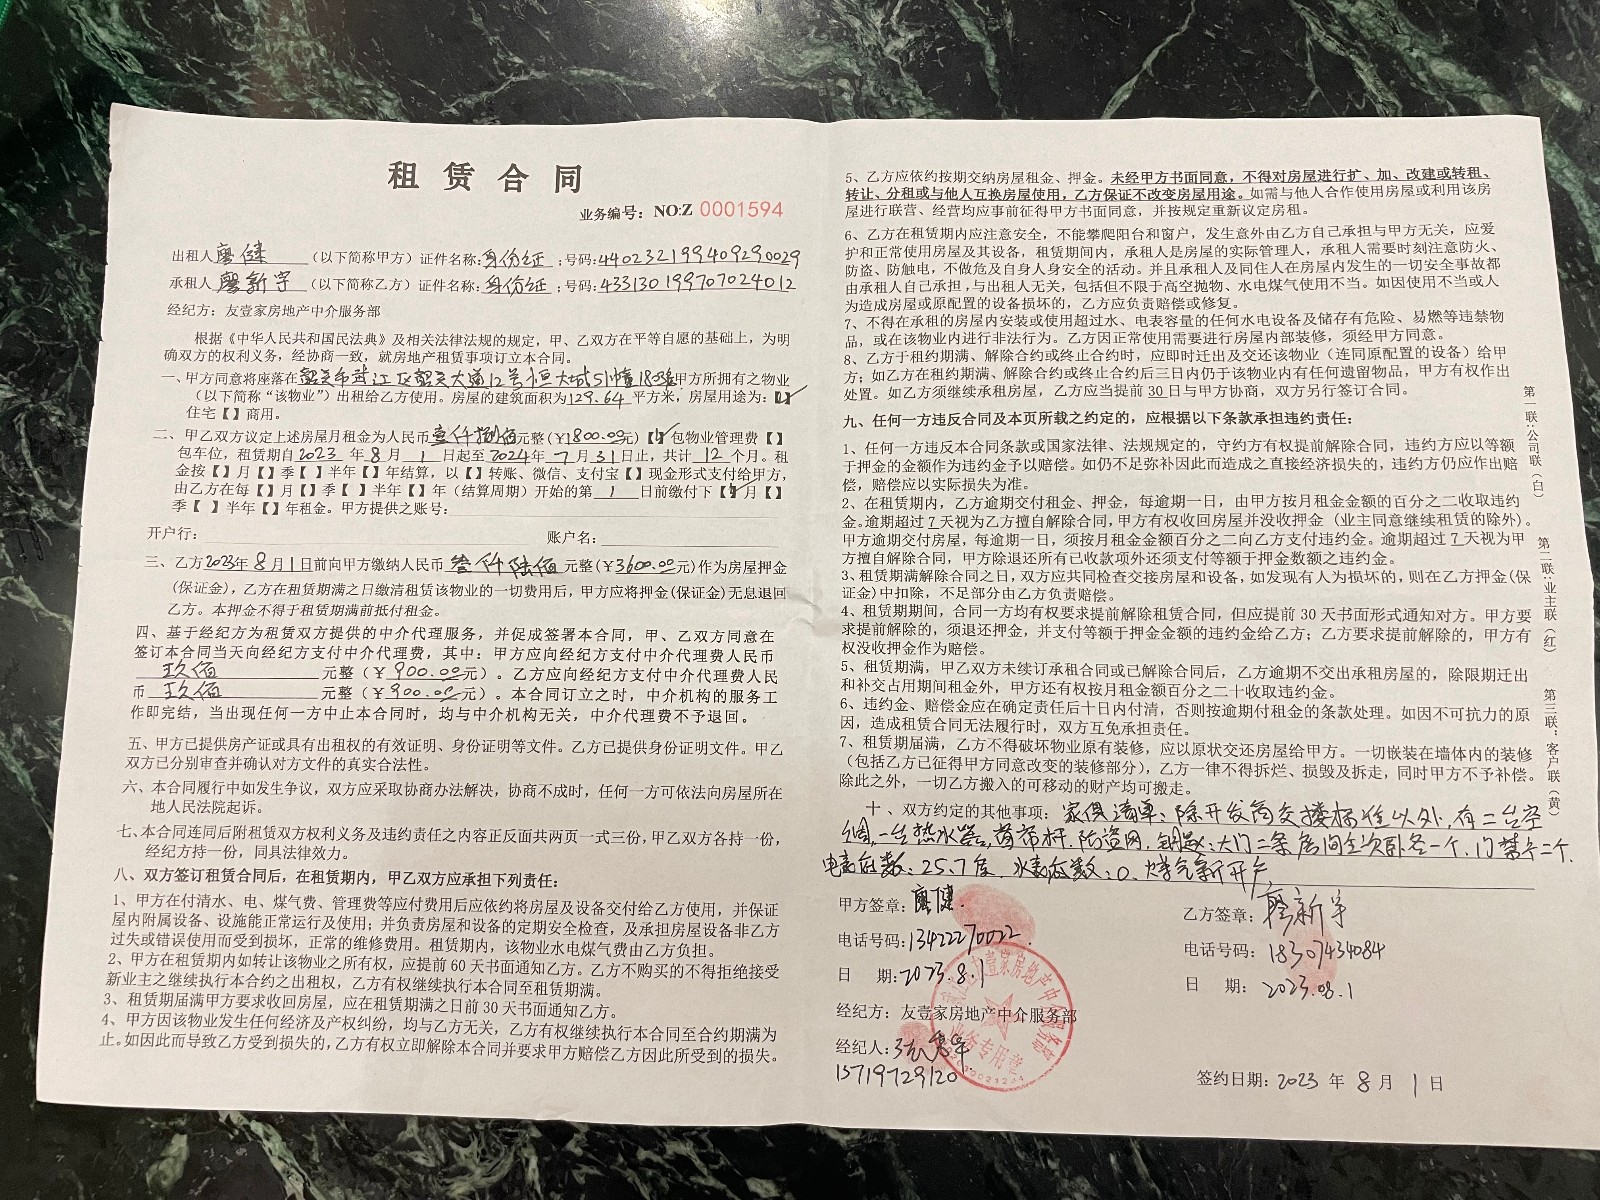 租赁合同
业务编号：NO:Z 0001594
出租人廖健（以下简称甲方）证件名称：身份证；号码：440232199409290029
承租人廖新宇（以下简称乙方）证件名称：身份证；号码：433130199707024012
经纪方：友壹家房地产中介服务部
根据《中华人民共和国民法典》及相关法律法规的规定，甲、乙双方在平等自愿的基础上，为明
确双方的权利义务，经协商一致，就房地产租赁事项订立本合同。
一、甲方同意将座落在韶关市武江区韶关大道12号恒大城51幢1803甲方所拥有之物业
（以下简称“该物业”）出租给乙方使用。房屋的建筑面积为129.64平方米，房屋用途为：【✓】
住宅【】商用。
二、甲乙双方议定上述房屋月租金为人民币壹仟捌佰元整（￥1800.00元）【✓】包物业管理费【】
包车位，租赁期自2023年8月1日起至2024年7月31日止，共计12个月。租
金按【】月【】季【】半年【】年结算，以【】转账、微信、支付宝【】现金形式支付给甲方，
由乙方在每【】月【】季【】半年【】年（结算周期）开始的第1日前缴付下【✓】月【】
季【】半年【】年租金。甲方提供之账号：
开户行：账户名：
三、乙方2023年8月1日前向甲方缴纳人民币叁仟陆佰元整（￥3600.00元）作为房屋押金
（保证金），乙方在租赁期满之日缴清租赁该物业的一切费用后，甲方应将押金(保证金)无息退回
乙方。本押金不得于租赁期满前抵付租金。
四、基于经纪方为租赁双方提供的中介代理服务，并促成签署本合同，甲、乙双方同意在
签订本合同当天向经纪方支付中介代理费，其中：甲方应向经纪方支付中介代理费人民币
玖佰元整（￥900.00元）。乙方应向经纪方支付中介代理费人民
币玖佰元整（￥900.00元）。本合同订立之时，中介机构的服务工
作即完结，当出现任何一方中止本合同时，均与中介机构无关，中介代理费不予退回。
五、甲方已提供房产证或具有出租权的有效证明、身份证明等文件。乙方已提供身份证明文件。甲乙
双方已分别审查并确认对方文件的真实合法性。
六、本合同履行中如发生争议，双方应采取协商办法解决，协商不成时，任何一方可依法向房屋所在
地人民法院起诉。
七、本合同连同后附租赁双方权利义务及违约责任之内容正反面共两页一式三份，甲乙双方各持一份，
经纪方持一份，同具法律效力。
八、双方签订租赁合同后，在租赁期内，甲乙双方应承担下列责任：
1、甲方在付清水、电、煤气费、管理费等应付费用后应依约将房屋及设备交付给乙方使用，并保证
屋内附属设备、设施能正常运行及使用；并负责房屋和设备的定期安全检查，及承担房屋设备非乙方
过失或错误使用而受到损坏，正常的维修费用。租赁期内，该物业水电煤气费由乙方负担。
2、甲方在租赁期内如转让该物业之所有权，应提前60天书面通知乙方。乙方不购买的不得拒绝接受
新业主之继续执行本合约之出租权，乙方有权继续执行本合同至租赁期满。
3、租赁期届满甲方要求收回房屋，应在租赁期满之日前30天书面通知乙方。
4、甲方因该物业发生任何经济及产权纠纷，均与乙方无关，乙方有权继续执行本合同至合约期满为
止。如因此而导致乙方受到损失的，乙方有权立即解除本合同并要求甲方赔偿乙方因此所受到的损失。
5、乙方应依约按期交纳房屋租金、押金。未经甲方书面同意，不得对房屋进行扩、加、改建或转租、
转让、分租或与他人互换房屋使用，乙方保证不改变房屋用途。如需与他人合作使用房屋或利用该房
屋进行联营、经营均应事前征得甲方书面同意，并按规定重新议定房租。
6、乙方在租赁期内应注意安全，不能攀爬阳台和窗户，发生意外由乙方自己承担与甲方无关，应爱
护和正常使用房屋及其设备，租赁期间内，承租人是房屋的实际管理人，承租人需要时刻注意防火、
防盗、防触电，不做危及自身人身安全的活动。并且承租人及同住人在房屋内发生的一切安全事故都
由承租人自己承担，与出租人无关，包括但不限于高空抛物、水电煤气使用不当。如因使用不当或人
为造成房屋或原配置的设备损坏的，乙方应负责赔偿或修复。
7、不得在承租的房屋内安装或使用超过水、电表容量的任何水电设备及储存有危险、易燃等违禁物
品，或在该物业内进行非法行为。乙方因正常使用需要进行房屋内部装修，须经甲方同意。
8、乙方于租约期满、解除合约或终止合约时，应即时迁出及交还该物业（连同原配置的设备）给甲
方；如乙方在租约期满、解除合约或终止合约后三日内仍于该物业内有任何遗留物品，甲方有权作出
处置。如乙方须继续承租房屋，乙方应当提前30日与甲方协商，双方另行签订合同。
九、任何一方违反合同及本页所载之约定的，应根据以下条款承担违约责任：
1、任何一方违反本合同条款或国家法律、法规规定的，守约方有权提前解除合同，违约方应以等额
于押金的金额作为违约金予以赔偿。如仍不足弥补因此而造成之直接经济损失的，违约方仍应作出赔
偿，赔偿应以实际损失为准。
2、在租赁期内，乙方逾期交付租金、押金，每逾期一日，由甲方按月租金金额的百分之二收取违约
金。逾期超过7天视为乙方擅自解除合同，甲方有权收回房屋并没收押金（业主同意继续租赁的除外）。
甲方逾期交付房屋，每逾期一日，须按月租金金额百分之二向乙方支付违约金。逾期超过7天视为甲
方擅自解除合同，甲方除退还所有已收款项外还须支付等额于押金数额之违约金。
3、租赁期满解除合同之日，双方应共同检查交接房屋和设备，如发现有人为损坏的，则在乙方押金(保
证金)中扣除，不足部分由乙方负责赔偿。
4、租赁期期间，合同一方均有权要求提前解除租赁合同，但应提前30天书面形式通知对方。甲方要
求提前解除的，须退还押金，并支付等额于押金金额的违约金给乙方；乙方要求提前解除的，甲方有
权没收押金作为赔偿。
5、租赁期满，甲甲乙双方未续订承租合同或已解除合同后，乙方逾期不交出承租房屋的，除限期迁出
和补交占用期间租金外，甲方还有权按月租金额百分之二十收取违约金。
6、违约金、赔偿金应在确定责任后十日内付清，否则按逾期付租金的条款处理。如因不可抗力的原
因，造成租赁合同无法履行时，双方互免承担责任。
7、租赁期届满，乙方不得破坏物业原有装修，应以原状交还房屋给甲方。一切嵌装在墙体内的装修
（包括乙方已征得甲方同意改变的装修部分），乙方一律不得拆烂、损毁及拆走，同时甲方不予补偿。
除此之外，一切乙方搬入的可移动的财产均可搬走。
十、双方约定的其他事项：家俱清单：除开发商交楼标准以外，有二台空
调，一台热水器，窗帘杆，防盗网，钥匙：大门二条房间主次卧各一个，门禁卡二个，
电表底数：25.7度，水表底数：0，煤气新开户
甲方签章：廖健
电话号码：13422270022
日期：2023.8.1
经纪方：友壹家房地产中介服务部
经纪人：
15719729120
乙方签章：廖新宇
电话号码：18307434084
日期：2023.08.1
签约日期：2023年8月1日
第一联：公司联（白）
第二联：业主联（红）
第三联：客户联（黄）